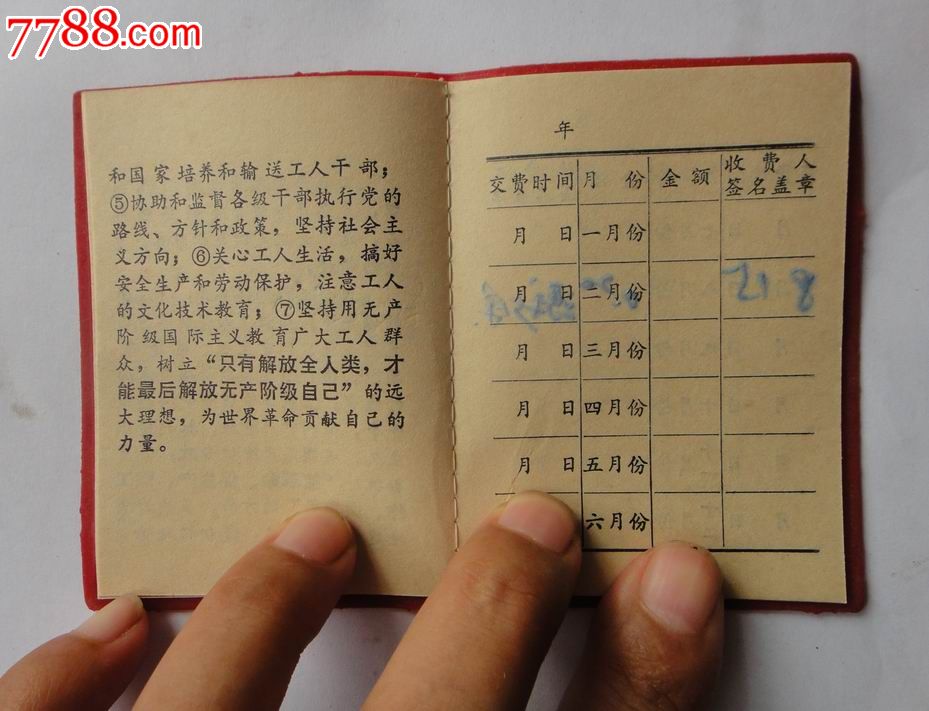 7788.com
和国家培养和输送工人干部；
⑤协助和监督各级干部执行党的
路线、方针和政策，坚持社会主
义方向；⑥关心工人生活，搞好
安全生产和劳动保护，注意工人
的文化技术教育；⑦坚持用无产
阶级国际主义教育广大工人群
众，树立“只有解放全人类，才
能最后解放无产阶级自己”的远
大理想，为世界革命贡献自己的
力量。
年
交费时间 月 份 金额 收费人签名盖章
月 日 一月份
月 日 二月份
月 日 三月份
月 日 四月份
月 日 五月份
六月份